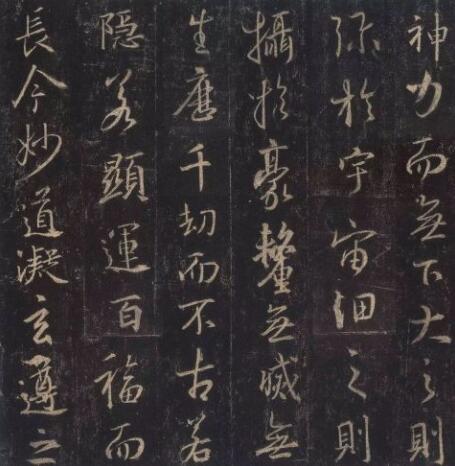 神力而無下大之則
弥於宇宙細之則
攝於豪釐無滅無
生歷千劫而不古若
隱若顯運百福而
長今妙道凝玄遵之